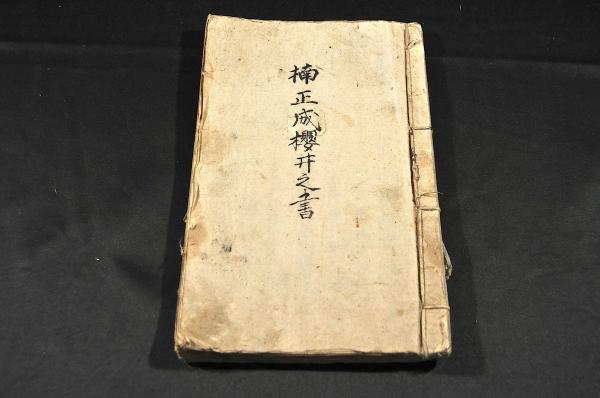 楠正成櫻井之書